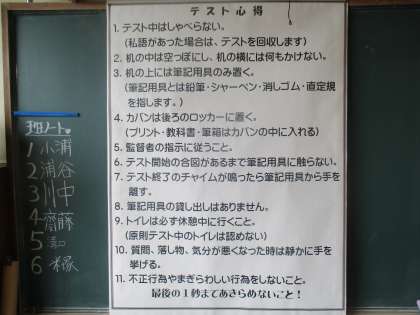 テスト心得
1. テスト中はしゃべらない。
(私語があった場合は、テストを回収します)
2. 机の中は空っぽにし、机の横には何もかけない。
3. 机の上には筆記用具のみ置く。
(筆記用具とは鉛筆・シャーペン・消しゴム・直定規
を指します。)
4. カバンは後ろのロッカーに置く。
(プリント・教科書・筆箱はカバンの中に入れる)
5. 監督者の指示に従うこと。
6. テスト開始の合図があるまで筆記用具に触らない。
7. テスト終了のチャイムが鳴ったら筆記用具から手を
離す。
8. 筆記用具の貸し出しはありません。
9. トイレは必ず休憩中に行くこと。
(原則テスト中のトイレは認めない)
10. 質問、落し物、気分が悪くなった時は静かに手を
挙げる。
11. 不正行為やまぎらわしい行為をしないこと。
最後の1秒まであきらめないこと!
班ノート
1 小浦
2 浦谷
3 川中
4 齋藤
5
6